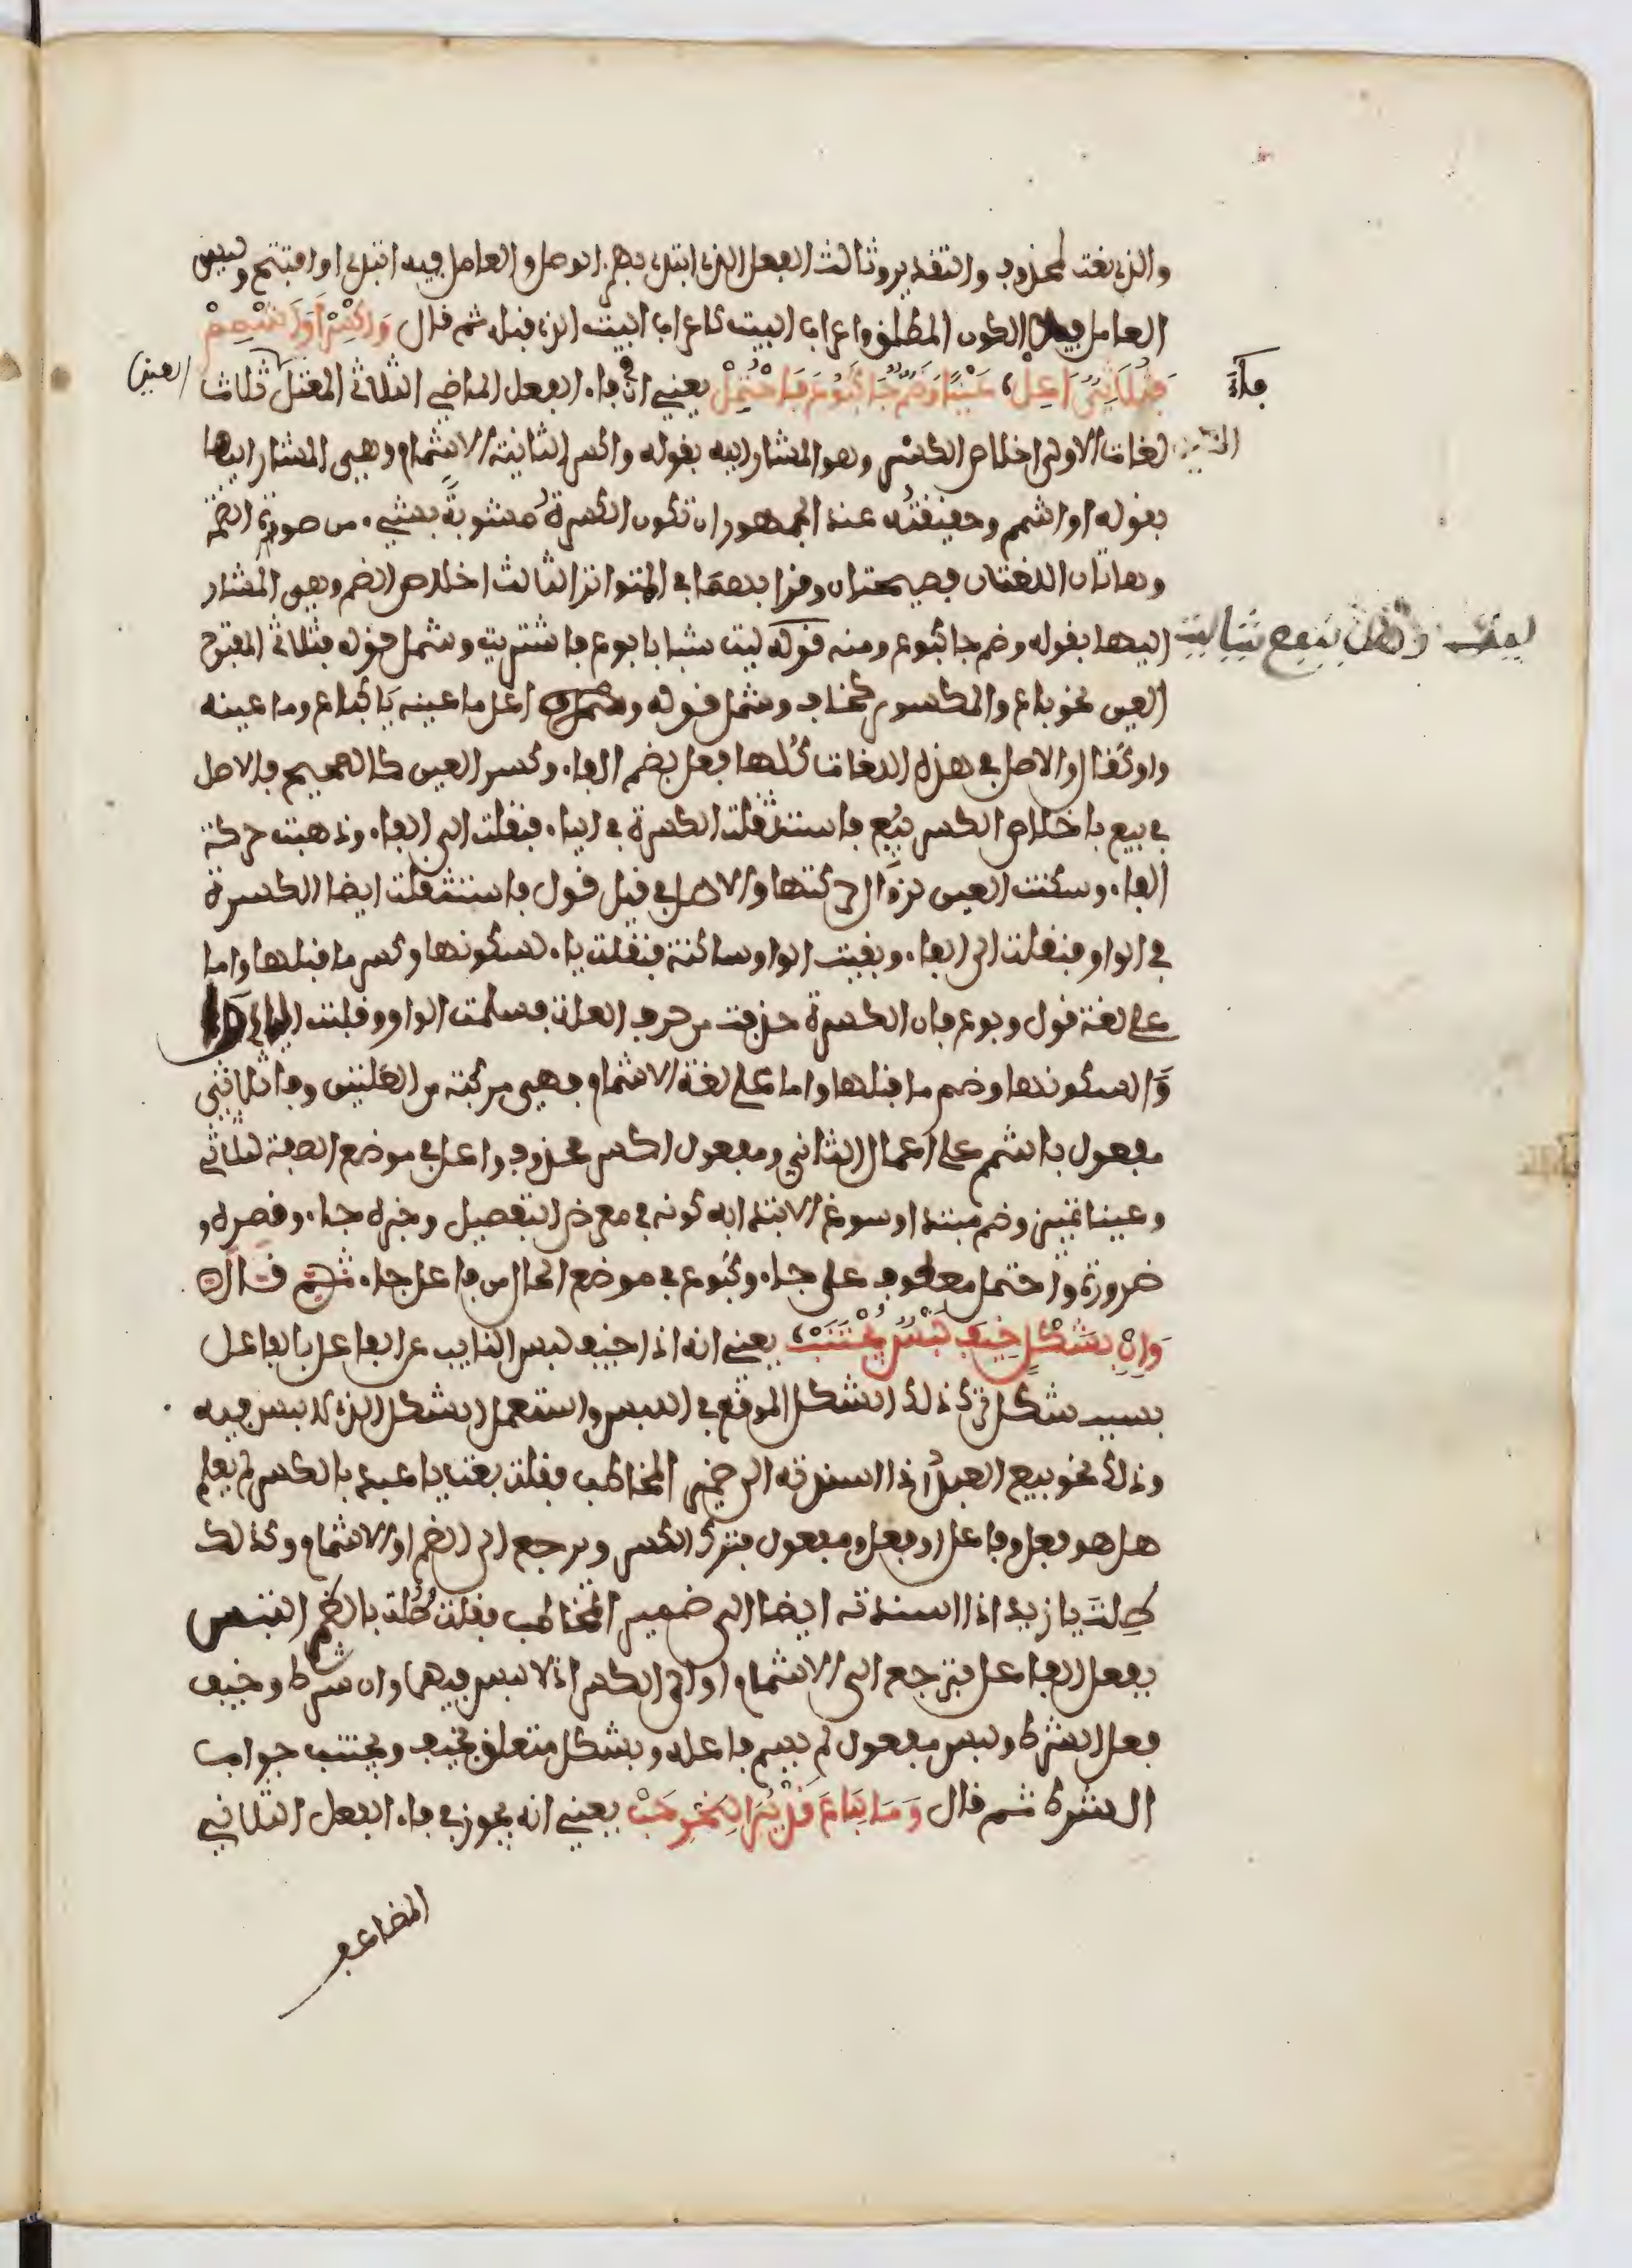 والذى نعت لمحذوف والتقدير وثالث الفعل الذى ابتدى بهمز الوصل والعامل فيه ابتدى او افتتح وليس
العامل فيه الكون المطلق واعراب البيت كاعراب البيت الذى قبله ثم قال وَاكْسِرْ أَوَ اشْمِمْ
فَا ثُلَاثِيٍّ اُعِلْ، عَيْنًا وَضَمٌّ جَا كَبُوعَ فَاحْتُمِلْ يعني ان في فاء الفعل الماضي الثلاثي المعتل ثلاث
العين
فاء
لغات الاولى اخلاص الكسر وهو المشار اليه بقوله واكسر الثانية الاشمام وهي المشار اليها
بقوله او اشمم وحقيقته عند الجمهور ان تكون الكسرة مشوبةً بشيء من صورة الضمة
وهاتان اللغتان فصيحتان وقرا بهما في المتواتر الثالث اخلاص الضم وهي المشار
اليها بقوله وضم جا كبوع ومنه قوله ليت شبابا بوع فاشتريت وشمل قوله فثلاثي المفتوح
ليت وهل ينفع شيا ليت
العين نحو باع والمكسور كخاف وشمل قوله اعل ما عينه يا كباع وما عينه
واو كقال والاصل في هذه اللغات كلها فعل بضم الفاء وكسر العين كالصحيح فالاصل
في بيع باخلاص الكسر بُيِع فاستثقلت الكسرة في الياء فنقلت الى الفاء وذهبت حركة
الفاء وسكنت العين لزوال حركتها والاصل في قيل قول فاستثقلت ايضا الكسرة
في الواو فنقلت الى الفاء وبقيت الواو ساكنة فقلبت ياء لسكونها وكسر ما قبلها واما
على لغة قول وبوع فان الكسرة حذفت من حرف العلة فسلمت الواو وقلبت الياء
وَّا لسكونها وضم ما قبلها واما على لغة الاشمام فهي مركبة من اللغتين وفا ثلاثي
مفعول باشمم على اعمال الثاني ومفعول اكسر محذوف واعل في موضع الصفة لثلاثي
وعينا تمييز وضم مبتدا وسوغ الابتدا به كونه في معرض التفصيل وخبره جاء وقصره
ضرورة واحتمل معطوف على جاء وكبوع في موضع الحال من فاعل جاء ثم قال
وَإِنْ بِشَكْلٍ خِيفَ لَبْسٌ يُجْتَنَبْ، يعني انه اذا خيف لبس النايب عن الفاعل بالفاعل
بسبب شكل ترك ذلك الشكل الموقع في اللبس واستعمل الشكل الذى لا لبس فيه
وذلك نحو بيع العبد اذا اسندته الى ضمير المخاطب فقلت بعت يا عبد بالكسر لم يعلم
هل هو فعل وفاعل او فعل ومفعول فيترك الكسر ويرجع الى الضم او الاشمام وكذلك
طلت يا زيد اذا اسندته ايضا الى ضمير المخاطب فقلت طُلت بالضم التبس
بفعل الفاعل فيرجع الى الاشمام او الى الكسر اذ لا لبس فيهما وان شرط وخيف
فعل الشرط ولبس مفعول لم يسم فاعله وبشكل متعلق بخيف ويجتنب جواب
الشرط ثم قال وَمَا لِبَاعَ قَدْ يُرَى لِنَحْوِ حَبْ يعني انه يجوز في فاء الفعل الثلاثي
المضاعف